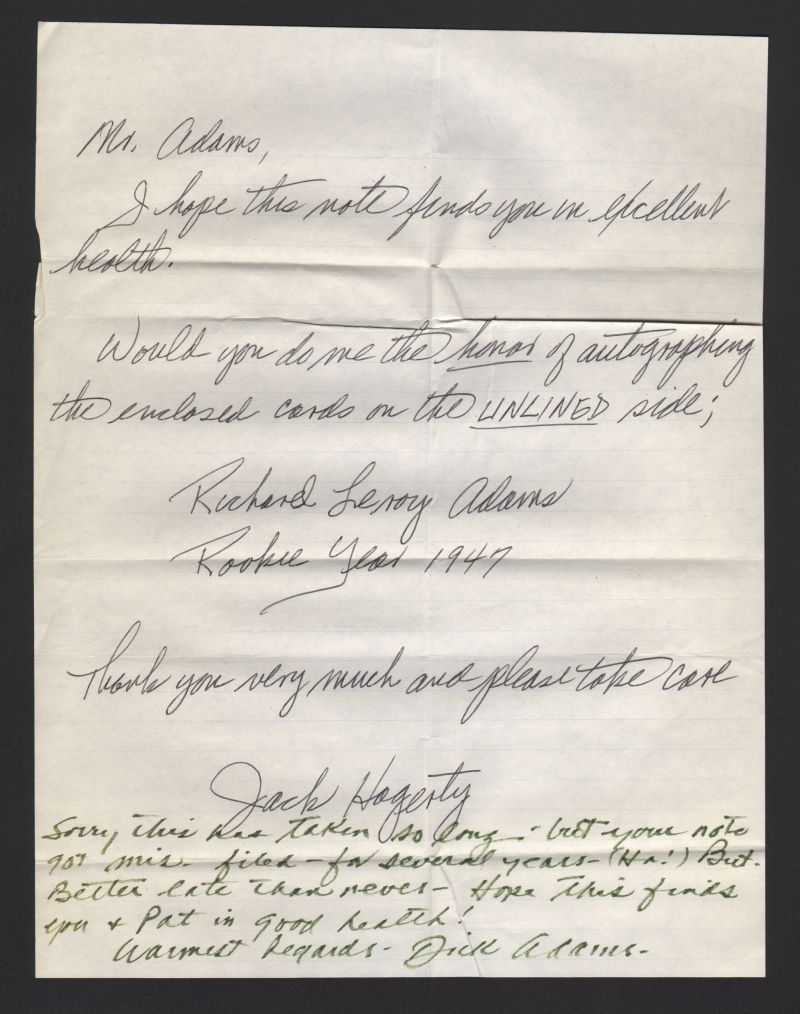 Mr. Adams,
I hope this note finds you in excellent
health.
Would you do me the honor of autographing
the enclosed cards on the UNLINED side;
Richard Leroy Adams
Rookie Year 1947
Thank you very much and please take care
Jack Hagerty
Sorry this has taken so long - but your note
got mis-filed - for several years - (Ha!) But.
Better late than never - Hope this finds
you & Pat in good health!
Warmest Regards - Dick Adams -